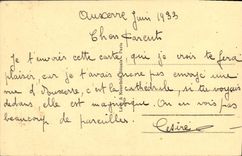 Auxerre Juin 1933
Chers Parents
Je t'envoir cette carte, que je crois te fera
plaisir, car je t'avais encore pas envoyé une
vue d'Auxerre, c'est la cathédrale, si tu voyais
dedans, elle est magnifique. On en vois pas
beaucoup de pareilles.
Désiré